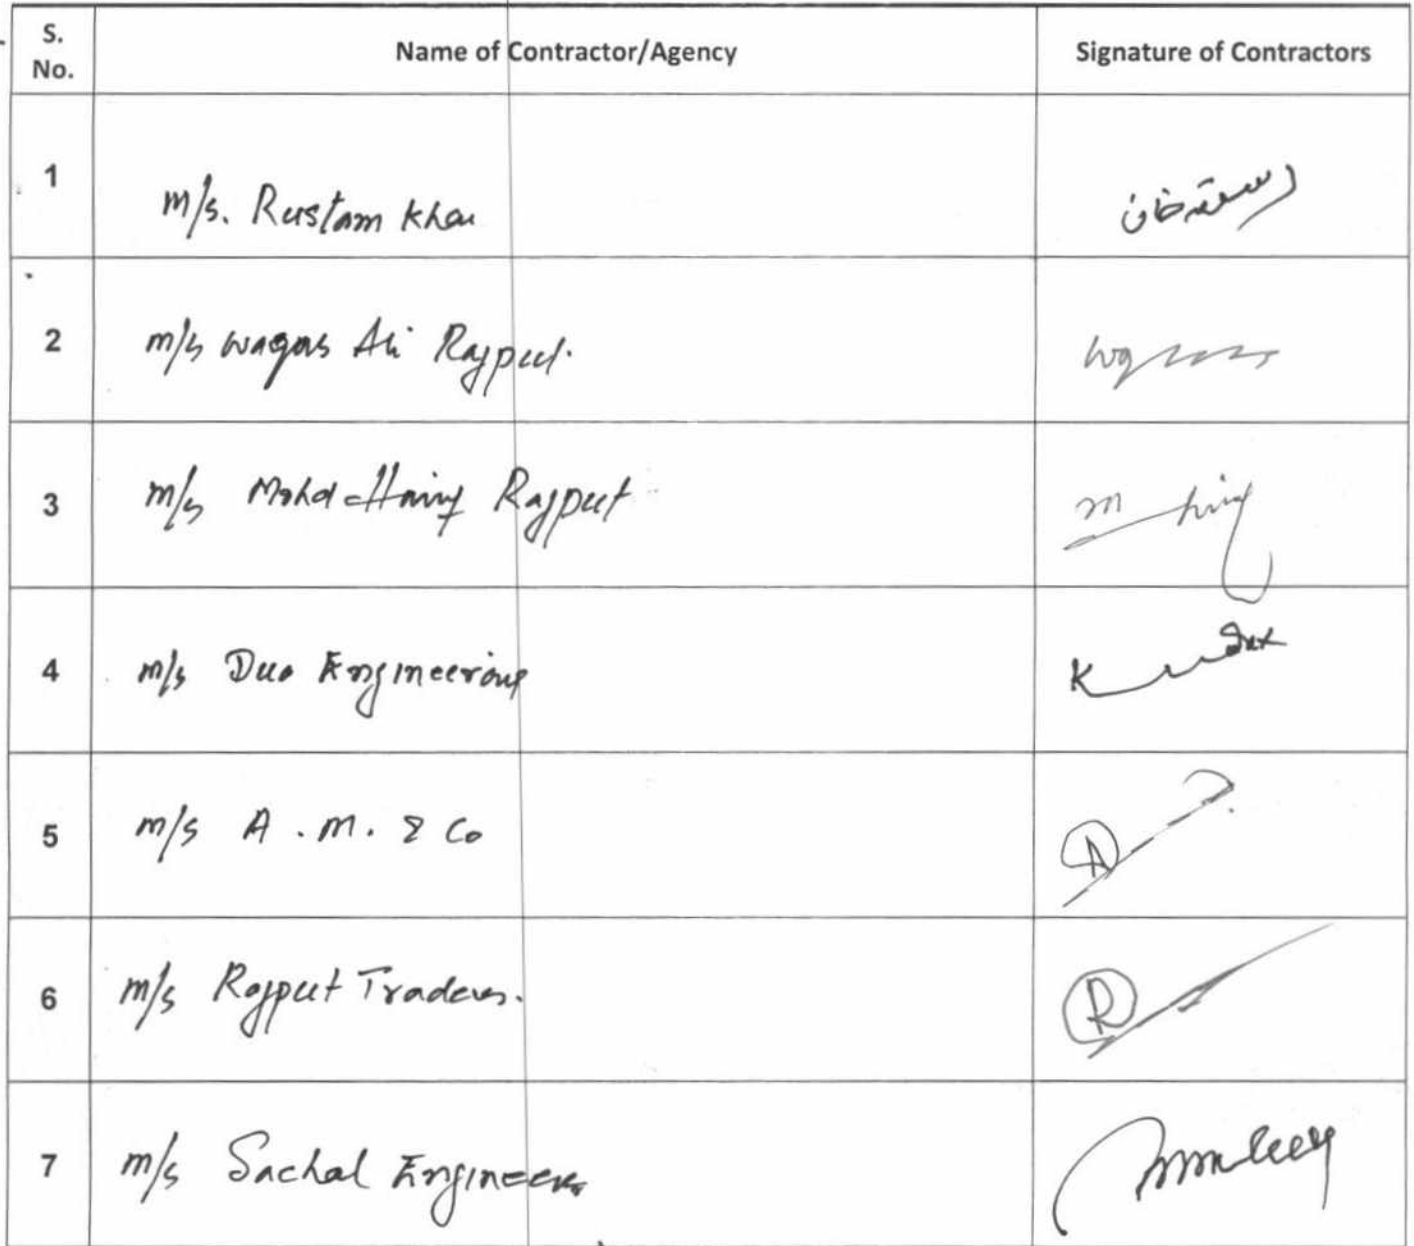 S. No. Name of Contractor/Agency Signature of Contractors
1 m/s. Rustam Khan رستم خان
2 m/s Waqas Ali Rajput.
3 m/s Mohd Hanif Rajput
4 m/s Duo Engineering
5 m/s A.M. & Co
6 m/s Rajput Traders. R
7 m/s Sachal Engineers